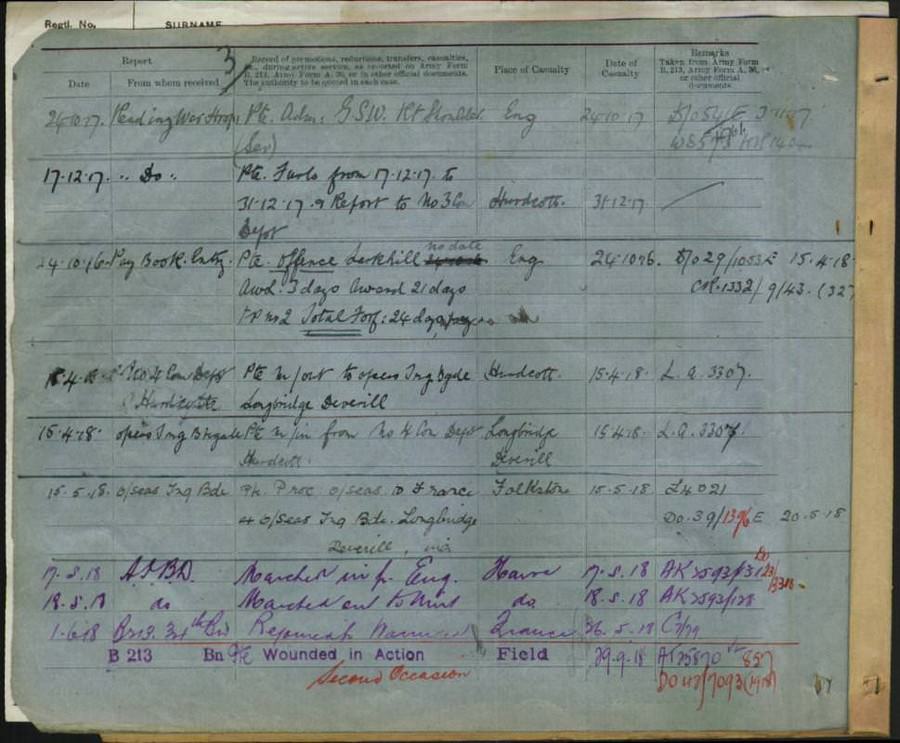 Regtl. No. SURNAME
3
Report
Record of promotions, reductions, transfers, casualties,
&c., during active service, as reported on Army Form
B. 213, Army Form A. 36, or in other official documents.
The authority to be quoted in each case.
Place of Casualty
Date of
Casualty
Remarks
Taken from Army Form
B. 213, Army Form A. 36,
or other official
documents.
Date From whom received
24.10.17. Reading War Hosp Pte. Adm: G.S.W. Rt Shoulder Eng 24.10.17
(Sev)
17.12.17. " Do " Pte. Furlo from 17.12.17. to
31.12.17. & Report to No 3 Con Hurdcott. 31.12.17.
Depot
24.10.16. Pay Book. Entry. Pte. offence Larkhill no date Eng 24.10.16. D/O 29/1053E 15.4.18.
Awd. 3 days Award 21 days 9/43. (327
F.P. No 2 Total Forf: 24 days
15.4.18 No 4 Con Depot Pte M/out to o/seas Trg Bgde Hurdcott. 15.4.18. L.A. 3307.
Hurdcott Longbridge Deverill
15.4.18. o/seas Trg Brigade Pte M/in from No 4 Con Depot Longbridge 15.4.18. L.A. 3307.
Hurdcott. Deverill
15.5.18. o/seas Trg Bde Pte. Proc o/seas to France Folkstone 15.5.18 L4021
o/seas Trg Bde. Longbridge Do. 39/1396E 20.5.18
Deverill, via
17.5.18 A.I.B.D. Marched in fr. Eng. Havre 17.5.18 AK2593/
18.5.18 do Marched out to Unit do. 18.5.18 AK2593/128
1.6.18 34th Bn Rejoined France 26.5.18
B 213 Bn Wounded in Action Field 29.9.18 857
Second Occasion